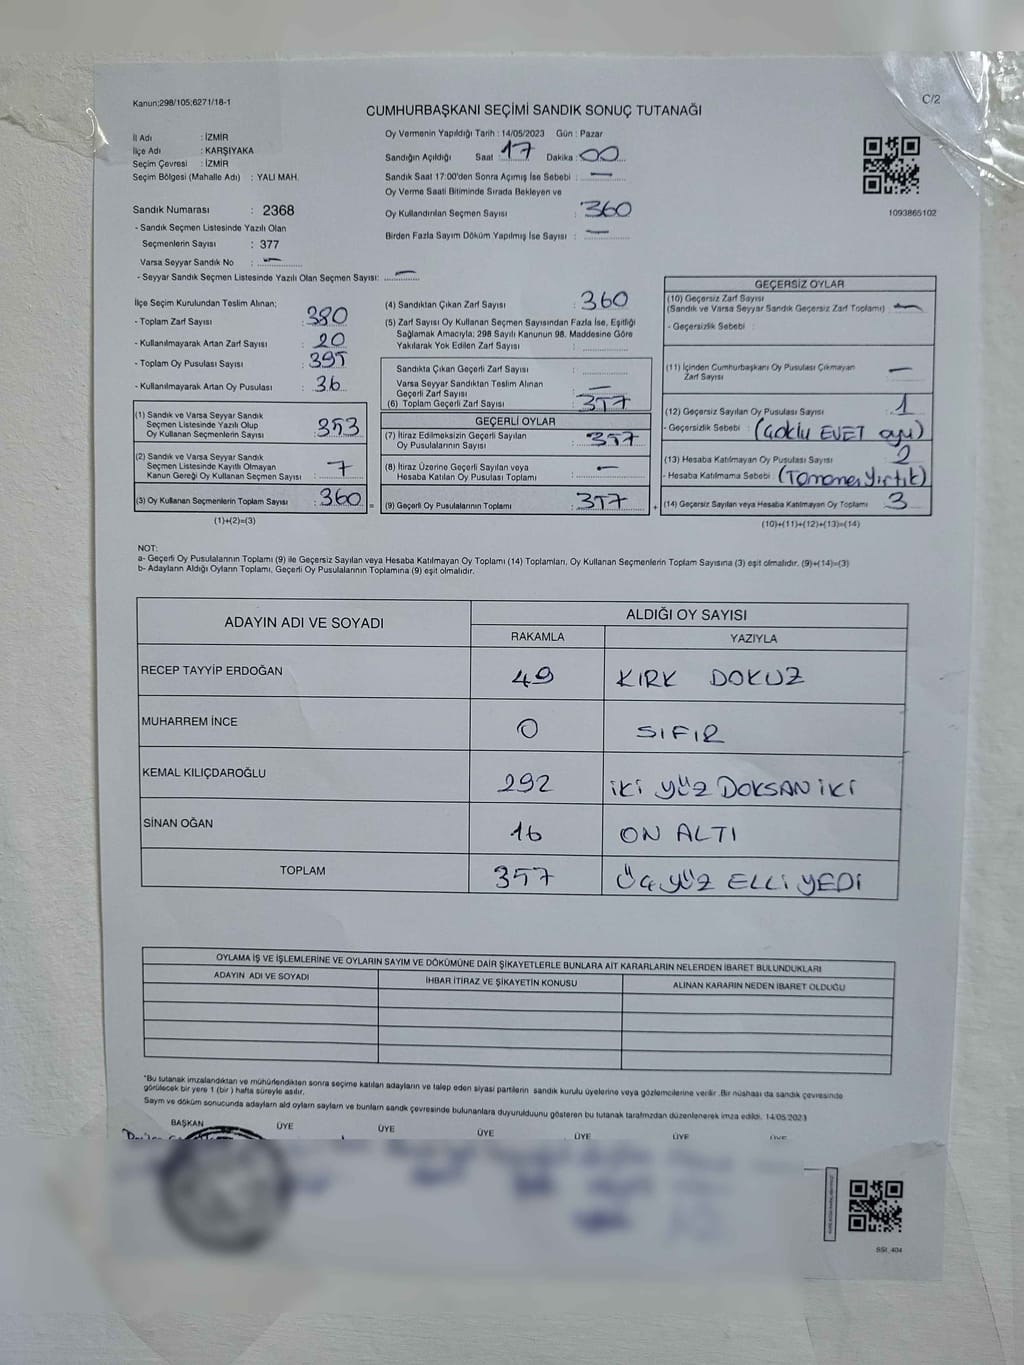 Kanun;298/105;6271/18-1
C/2
CUMHURBAŞKANI SEÇİMİ SANDIK SONUÇ TUTANAĞI
İl Adı : İZMİR
İlçe Adı : KARŞIYAKA
Seçim Çevresi : İZMİR
Seçim Bölgesi (Mahalle Adı) : YALI MAH.
Sandık Numarası : 2368
- Sandık Seçmen Listesinde Yazılı Olan
Seçmenlerin Sayısı : 377
Varsa Seyyar Sandık No : —
- Seyyar Sandık Seçmen Listesinde Yazılı Olan Seçmen Sayısı: —
Oy Vermenin Yapıldığı Tarih : 14/05/2023 Gün : Pazar
Sandığın Açıldığı Saat : 17 Dakika : 00
Sandık Saat 17:00'den Sonra Açımış İse Sebebi : —
Oy Verme Saati Bitiminde Sırada Bekleyen ve
Oy Kullandırılan Seçmen Sayısı : 360
Birden Fazla Sayım Döküm Yapılmış İse Sayısı : —
1093865102
İlçe Seçim Kurulundan Teslim Alınan;
- Toplam Zarf Sayısı : 380
- Kullanılmayarak Artan Zarf Sayısı : 20
- Toplam Oy Pusulası Sayısı : 395
- Kullanılmayarak Artan Oy Pusulası : 36
(1) Sandık ve Varsa Seyyar Sandık
Seçmen Listesinde Yazılı Olup
Oy Kullanan Seçmenlerin Sayısı : 353
(2) Sandık ve Varsa Seyyar Sandık
Seçmen Listesinde Kayıtlı Olmayan
Kanun Gereği Oy Kullanan Seçmen Sayısı : 7
(3) Oy Kullanan Seçmenlerin Toplam Sayısı : 360
(1)+(2)=(3)
(4) Sandıktan Çıkan Zarf Sayısı : 360
(5) Zarf Sayısı Oy Kullanan Seçmen Sayısından Fazla İse, Eşitliği
Sağlamak Amacıyla; 298 Sayılı Kanunun 98. Maddesine Göre
Yakılarak Yok Edilen Zarf Sayısı :
Sandıkta Çıkan Geçerli Zarf Sayısı :
Varsa Seyyar Sandıktan Teslim Alınan
Geçerli Zarf Sayısı : —
(6) Toplam Geçerli Zarf Sayısı : 357
GEÇERLİ OYLAR
(7) İtiraz Edilmeksizin Geçerli Sayılan
Oy Pusulalarının Sayısı : 357
(8) İtiraz Üzerine Geçerli Sayılan veya
Hesaba Katılan Oy Pusulası Toplamı : —
= (9) Geçerli Oy Pusulalarının Toplamı : 357
GEÇERSİZ OYLAR
(10) Geçersiz Zarf Sayısı
(Sandık ve Varsa Seyyar Sandık Geçersiz Zarf Toplamı) : —
- Geçersizlik Sebebi :
(11) İçinden Cumhurbaşkanı Oy Pusulası Çıkmayan
Zarf Sayısı : —
(12) Geçersiz Sayılan Oy Pusulası Sayısı : 1
- Geçersizlik Sebebi : (Çoklu EVET oyu)
(13) Hesaba Katılmayan Oy Pusulası Sayısı : 2
- Hesaba Katılmama Sebebi : (Tamamen Yırtık)
+ (14) Geçersiz Sayılan veya Hesaba Katılmayan Oy Toplamı 3
(10)+(11)+(12)+(13)=(14)
NOT:
a- Geçerli Oy Pusulalarının Toplamı (9) ile Geçersiz Sayılan veya Hesaba Katılmayan Oy Toplamı (14) Toplamları, Oy Kullanan Seçmenlerin Toplam Sayısına (3) eşit olmalıdır. (9)+(14)=(3)
b- Adayların Aldığı Oyların Toplamı, Geçerli Oy Pusulalarının Toplamına (9) eşit olmalıdır.
ADAYIN ADI VE SOYADI
ALDIĞI OY SAYISI
RAKAMLA YAZIYLA
RECEP TAYYİP ERDOĞAN 49 KIRK DOKUZ
MUHARREM İNCE 0 SIFIR
KEMAL KILIÇDAROĞLU 292 İKİ YÜZ DOKSAN İKİ
SİNAN OĞAN 16 ON ALTI
TOPLAM 357 ÜÇYÜZ ELLİ YEDİ
OYLAMA İŞ VE İŞLEMLERİNE VE OYLARIN SAYIM VE DÖKÜMÜNE DAİR ŞİKAYETLERLE BUNLARA AİT KARARLARIN NELERDEN İBARET BULUNDUKLARI
ADAYIN ADI VE SOYADI İHBAR İTİRAZ VE ŞİKAYETİN KONUSU ALINAN KARARIN NEDEN İBARET OLDUĞU
"Bu tutanak imzalandıktan ve mühürlendikten sonra seçime katılan adayların ve talep eden siyasi partilerin sandık kurulu üyelerine veya gözlemcilerine verilir. Bir nüshası da sandık çevresinde
görülecek bir yere 1 (bir ) hafta süreyle asılır.
Sayım ve döküm sonucunda adayların ald oyların sayıları ve bunların sandık çevresinde bulunanlara duyurulduunu gösteren bu tutanak tarafımzdan düzenlenerek imza edildi. 14/05/2023
BAŞKAN ÜYE ÜYE ÜYE ÜYE ÜYE ÜYE
SSI_404